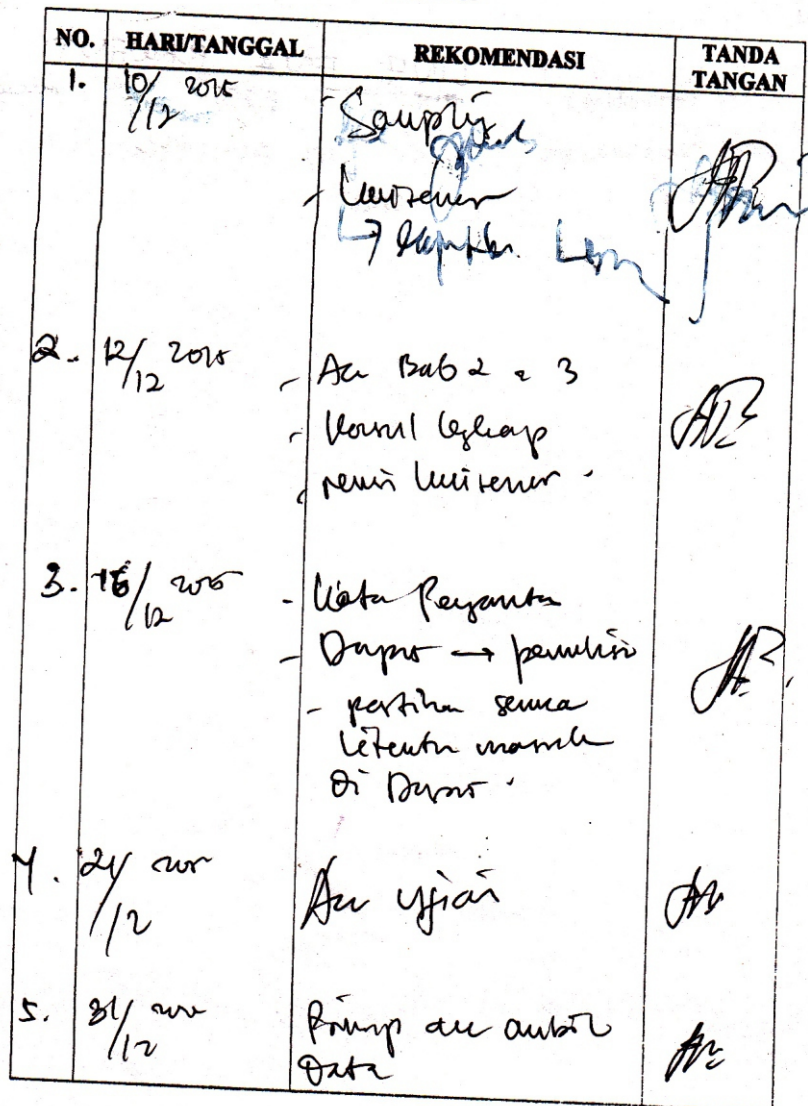 NO. HARI/TANGGAL REKOMENDASI TANDA TANGAN
1. 10/12 2015 - Sampling
- Kuisener
↳
2. 12/12 2015 - Acc Bab 2 & 3
- Konsul lengkap
- revisi kuisener.
3. 16/12 2015 - Kata Pengantar
- Dapus → penulisan
- pastikan semua
literatur masuk
di Dapus.
4. 21/12 2015 Acc ujian
5. 31/12 Prinsip acc ambil
Data